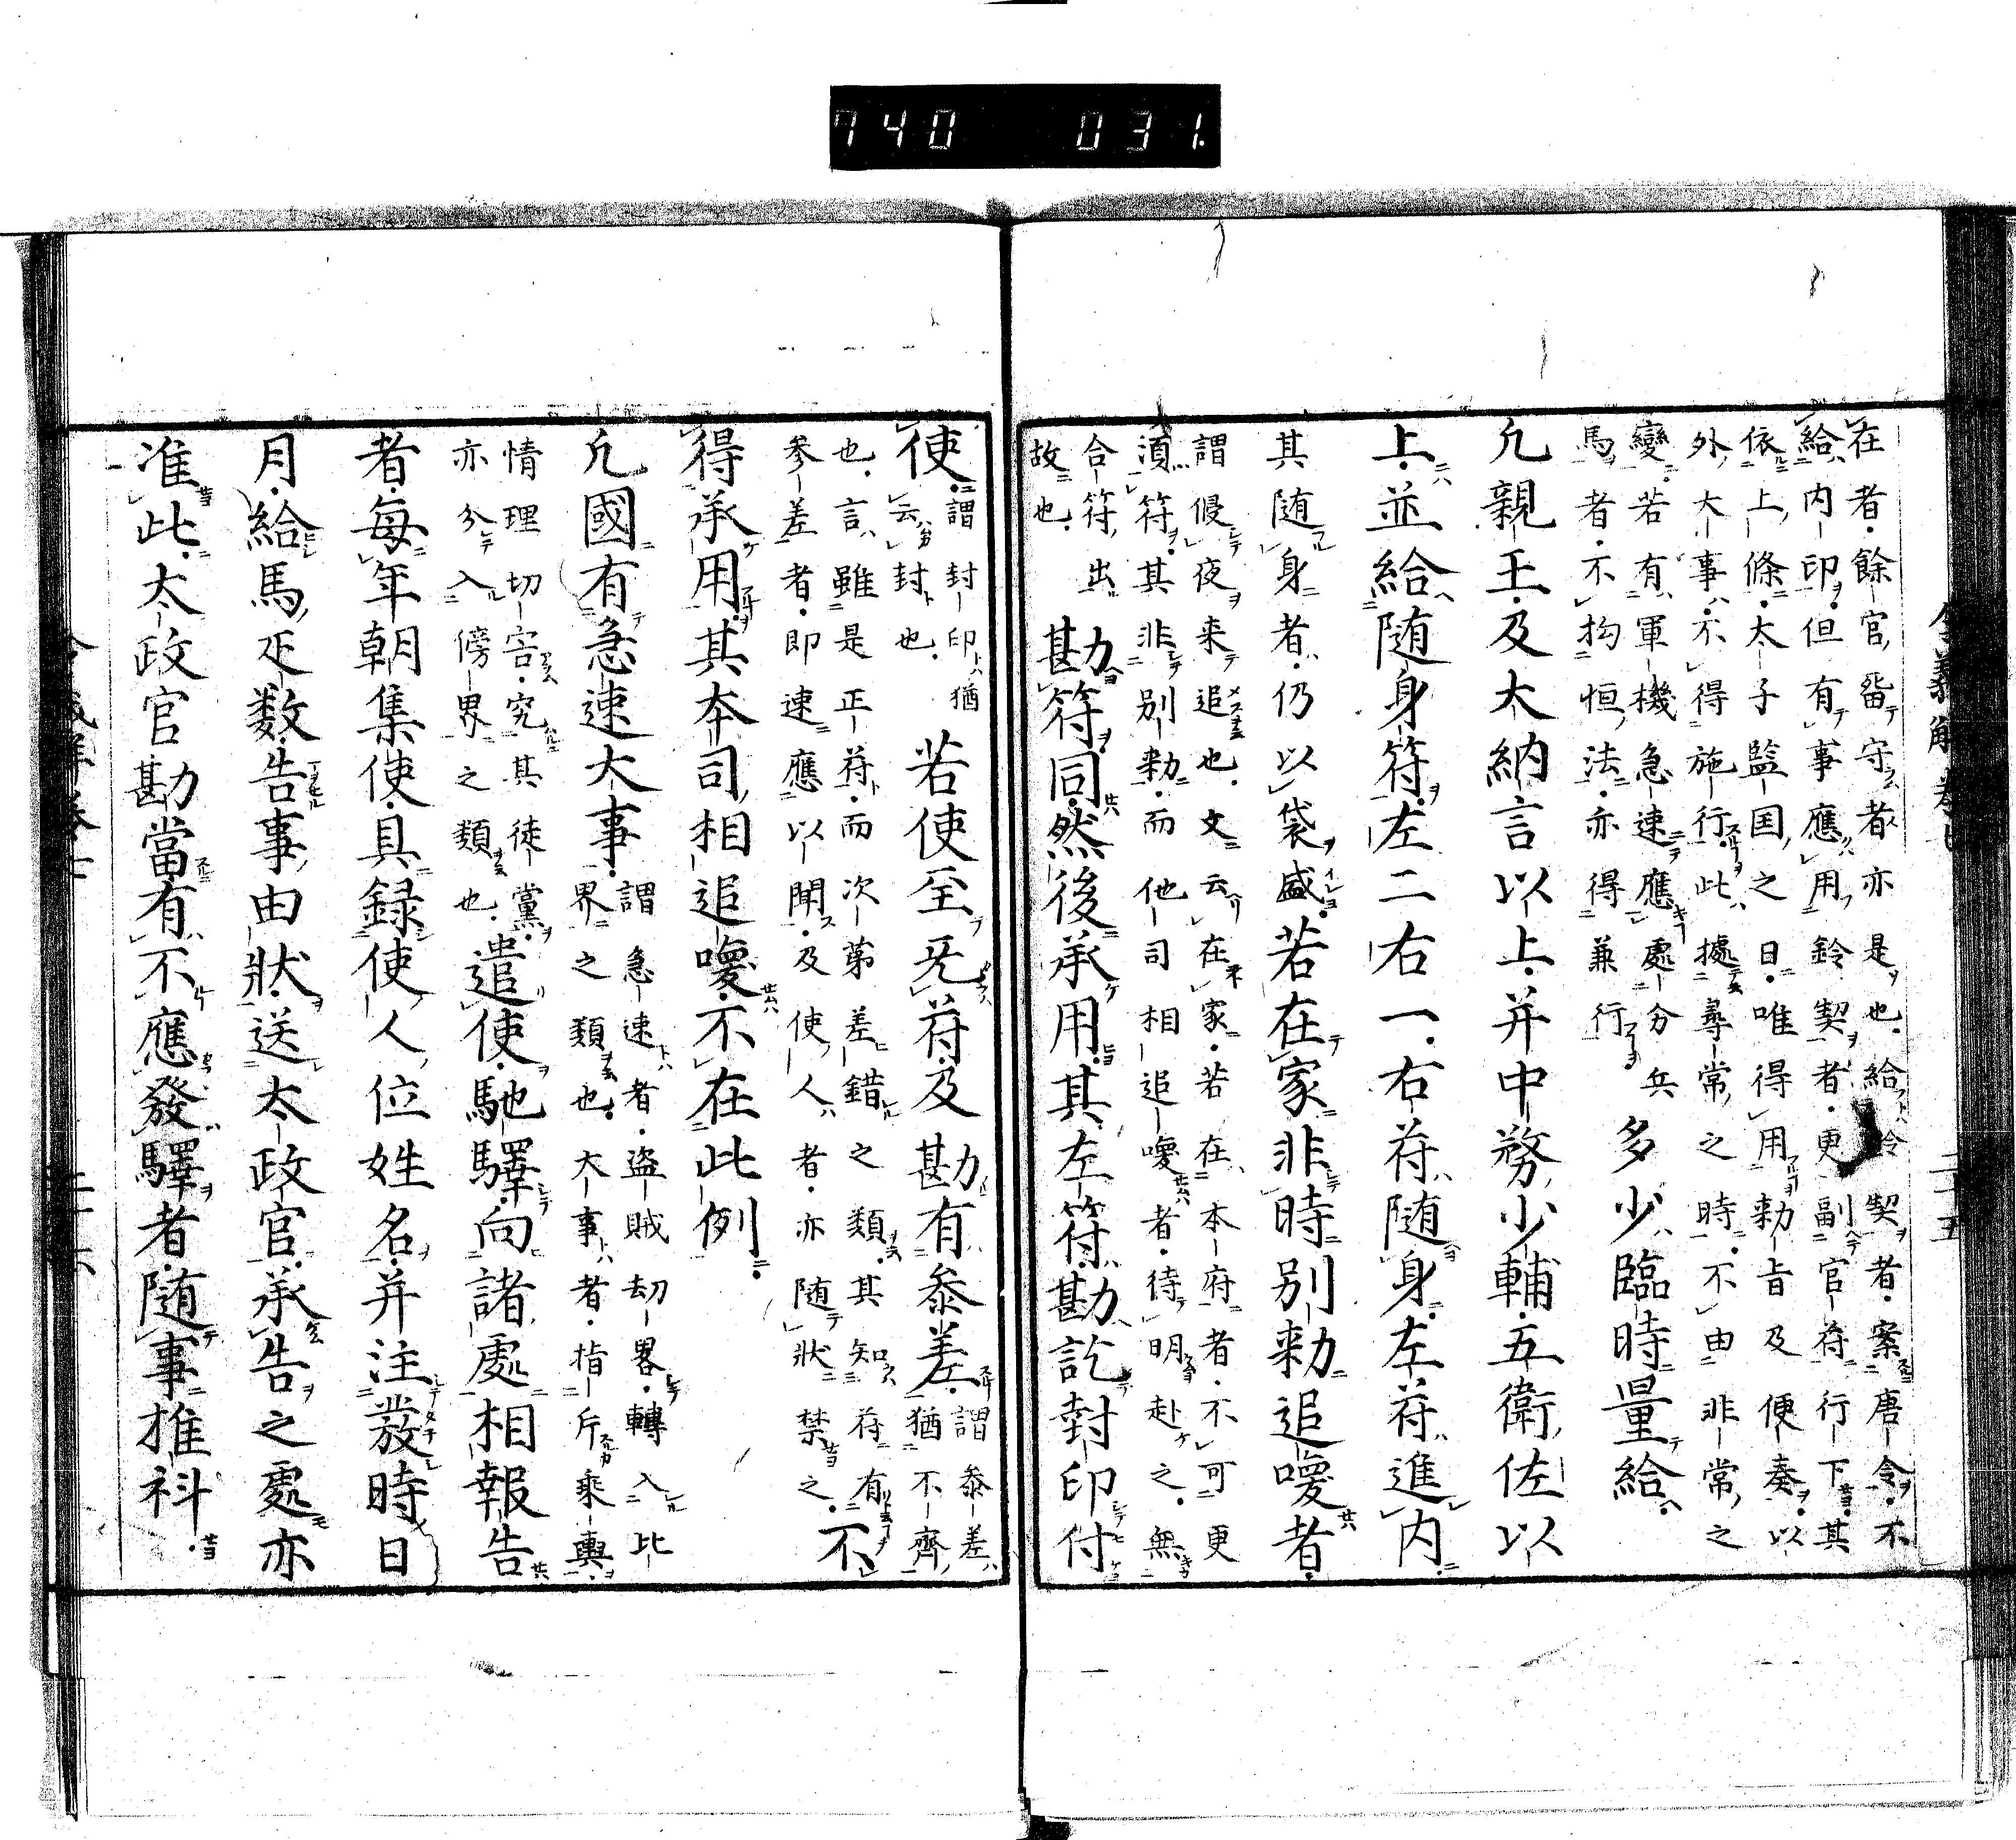 740 031.
在者餘官畱守者亦是也給鈴契者案唐令不
給内印但有事應用鈴契者更副官符行下其
依上條太子監国之日唯得用勅旨及便奏以
外大事不得施行此據尋常之時不由非常之
變若有軍機急速應處分兵
馬者不拘恒法亦得兼行
多少臨時量給
凢親王及大納言以上并中務少輔五衛佐以
上並給随身符左二右一右符随身左符進内
其随身者仍以袋盛若在家非時別勅追喚者
謂侵夜来追也文云在家若在本府者不可更
湏符其非別勅而他司相追喚者待明赴之無
合符出
故也
勘符同然後承用其左符勘訖封印付
使
謂封印猶
云封也
若使至无符及勘有叅差
謂叅差
猶不齊
也言雖是正符而次第差錯之類其知符有
参差者即速應以聞及使人者亦随状禁之
不
得承用其本司相追喚不在此例
凢國有急速大事
謂急速者盗賊刧畧轉入比
界之類也大事者指斥乘輿
情理切害究其徒黨
亦分入傍界之類也
遣使馳驛向諸處相報告
者每年朝集使具録使人位姓名并注發時日
月給馬疋数告事由狀送太政官承告之處亦
准此太政官勘當有不應發驛者随事推科
令義解卷七
二十五